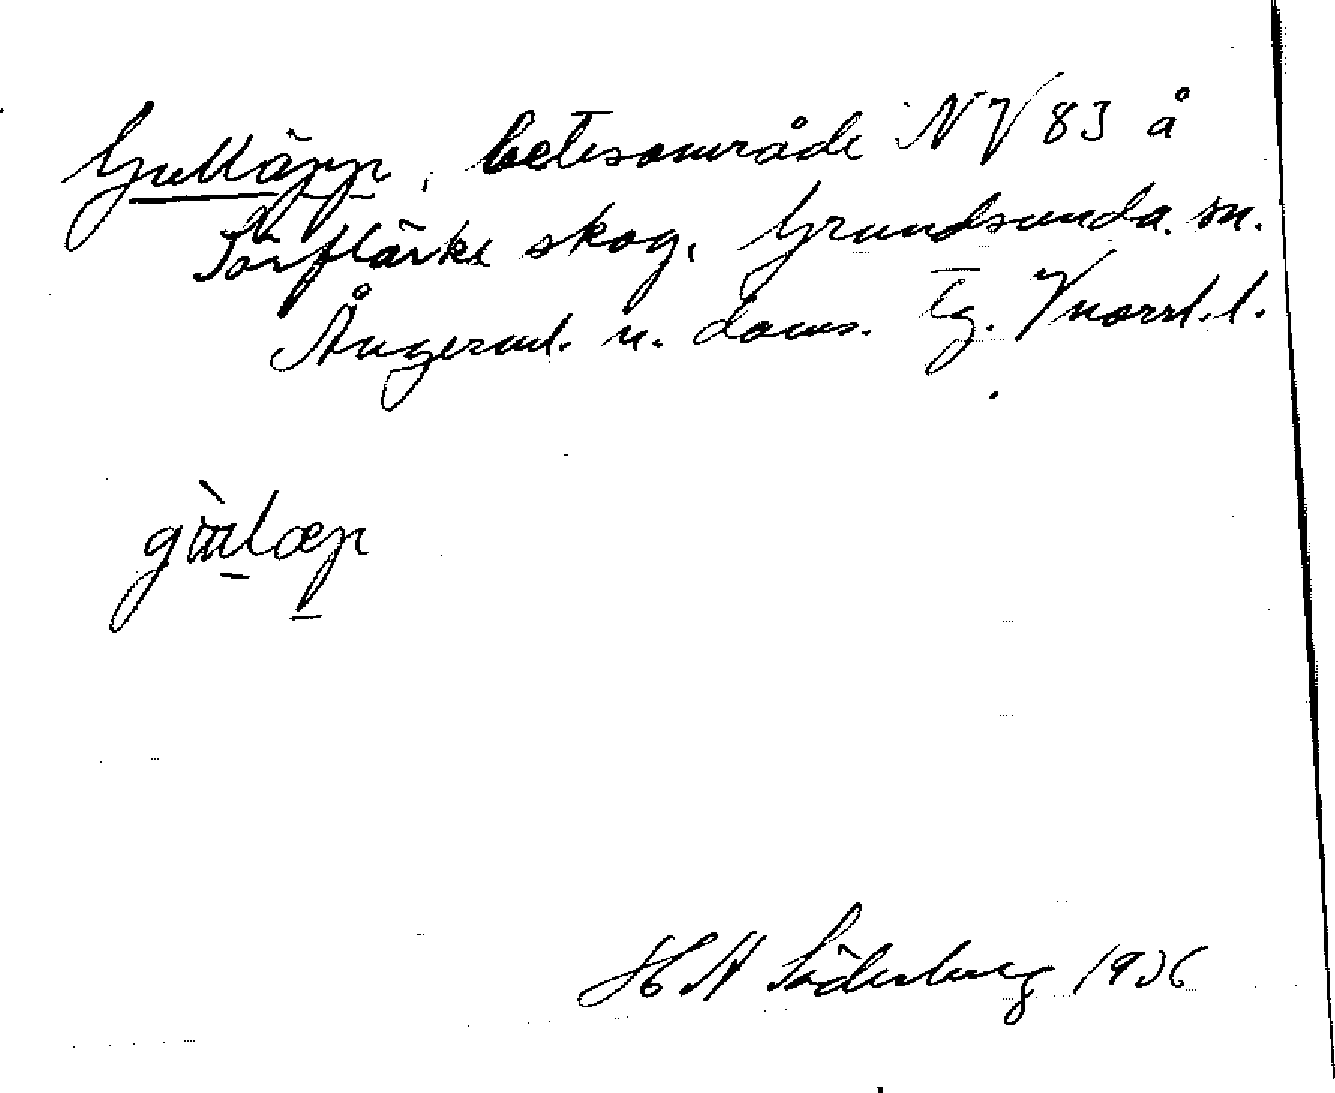 Gulläpp, betesområde NV 83 å
Sörflärke skog, Grundsunda sn.
Ångerml. n. doms. Tg. Vnorrl. l.
H A Söderberg 1936